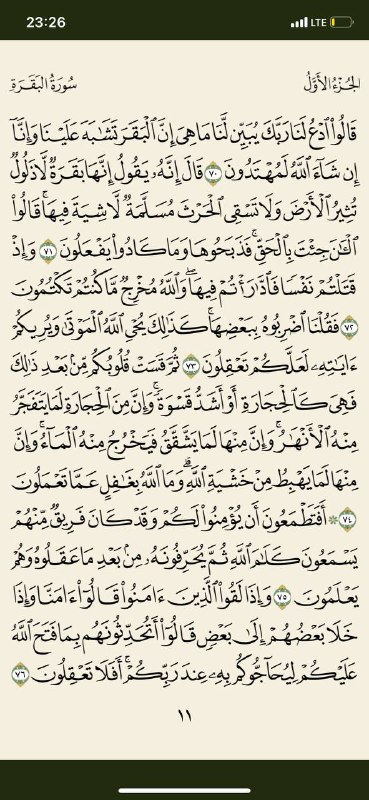 23:26 LTE
سُورَةُ البَقَرَةِ الجُزْءُ الأَوَّلُ
قَالُوا۟ ٱدْعُ لَنَا رَبَّكَ يُبَيِّن لَّنَا مَا هِىَ إِنَّ ٱلْبَقَرَ تَشَٰبَهَ عَلَيْنَا وَإِنَّآ
إِن شَآءَ ٱللَّهُ لَمُهْتَدُونَ ٧٠ قَالَ إِنَّهُۥ يَقُولُ إِنَّهَا بَقَرَةٌ لَّا ذَلُولٌ
تُثِيرُ ٱلْأَرْضَ وَلَا تَسْقِى ٱلْحَرْثَ مُسَلَّمَةٌ لَّا شِيَةَ فِيهَا ۚ قَالُوا۟
ٱلْـَٰٔنَ جِئْتَ بِٱلْحَقِّ ۚ فَذَبَحُوهَا وَمَا كَادُوا۟ يَفْعَلُونَ ٧١ وَإِذْ
قَتَلْتُمْ نَفْسًا فَٱدَّٰرَْٰٔتُمْ فِيهَا ۖ وَٱللَّهُ مُخْرِجٌ مَّا كُنتُمْ تَكْتُمُونَ
٧٢ فَقُلْنَا ٱضْرِبُوهُ بِبَعْضِهَا ۚ كَذَٰلِكَ يُحْىِ ٱللَّهُ ٱلْمَوْتَىٰ وَيُرِيكُمْ
ءَايَٰتِهِۦ لَعَلَّكُمْ تَعْقِلُونَ ٧٣ ثُمَّ قَسَتْ قُلُوبُكُم مِّنۢ بَعْدِ ذَٰلِكَ
فَهِىَ كَٱلْحِجَارَةِ أَوْ أَشَدُّ قَسْوَةً ۚ وَإِنَّ مِنَ ٱلْحِجَارَةِ لَمَا يَتَفَجَّرُ
مِنْهُ ٱلْأَنْهَٰرُ ۚ وَإِنَّ مِنْهَا لَمَا يَشَّقَّقُ فَيَخْرُجُ مِنْهُ ٱلْمَآءُ ۚ وَإِنَّ
مِنْهَا لَمَا يَهْبِطُ مِنْ خَشْيَةِ ٱللَّهِ ۗ وَمَا ٱللَّهُ بِغَٰفِلٍ عَمَّا تَعْمَلُونَ
٧٤ ۞ أَفَتَطْمَعُونَ أَن يُؤْمِنُوا۟ لَكُمْ وَقَدْ كَانَ فَرِيقٌ مِّنْهُمْ
يَسْمَعُونَ كَلَٰمَ ٱللَّهِ ثُمَّ يُحَرِّفُونَهُۥ مِنۢ بَعْدِ مَا عَقَلُوهُ وَهُمْ
يَعْلَمُونَ ٧٥ وَإِذَا لَقُوا۟ ٱلَّذِينَ ءَامَنُوا۟ قَالُوٓا۟ ءَامَنَّا وَإِذَا
خَلَا بَعْضُهُمْ إِلَىٰ بَعْضٍ قَالُوٓا۟ أَتُحَدِّثُونَهُم بِمَا فَتَحَ ٱللَّهُ
عَلَيْكُمْ لِيُحَآجُّوكُم بِهِۦ عِندَ رَبِّكُمْ ۚ أَفَلَا تَعْقِلُونَ ٧٦
١١